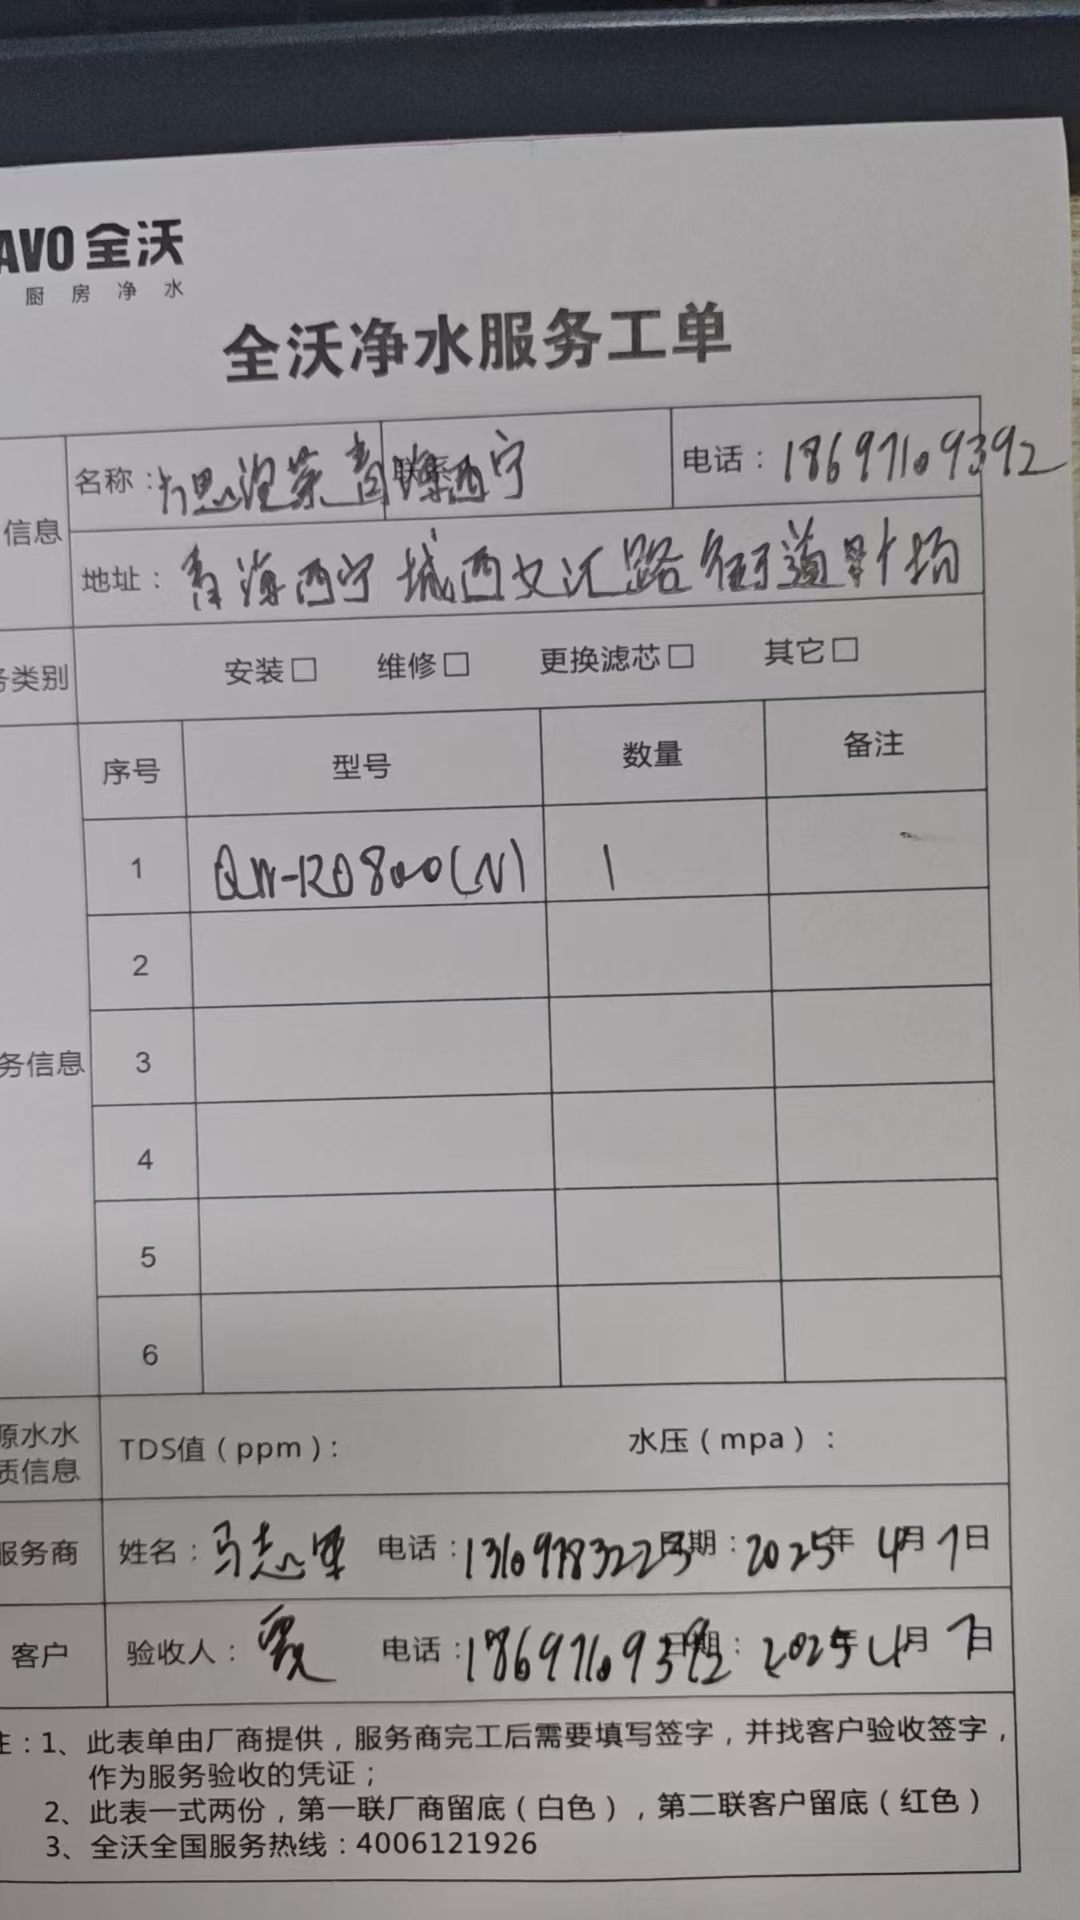 AVO 全沃
厨房净水
全沃净水服务工单
信息
名称：
电话：18697109392
地址：青海西宁城西文汇路街道
务类别
安装□ 维修□ 更换滤芯□ 其它□
序号 型号 数量 备注
1 QW-RO800(N) 1
2
3
4
5
6
务信息
原水水
质信息
TDS值（ppm）： 水压（mpa）：
服务商 姓名：马志军 电话：13109783223 日期：2025年4月7日
客户 验收人： 电话：18697109392 日期：2025年4月7日
注：1、此表单由厂商提供，服务商完工后需要填写签字，并找客户验收签字，
作为服务验收的凭证；
2、此表一式两份，第一联厂商留底（白色），第二联客户留底（红色）
3、全沃全国服务热线：4006121926